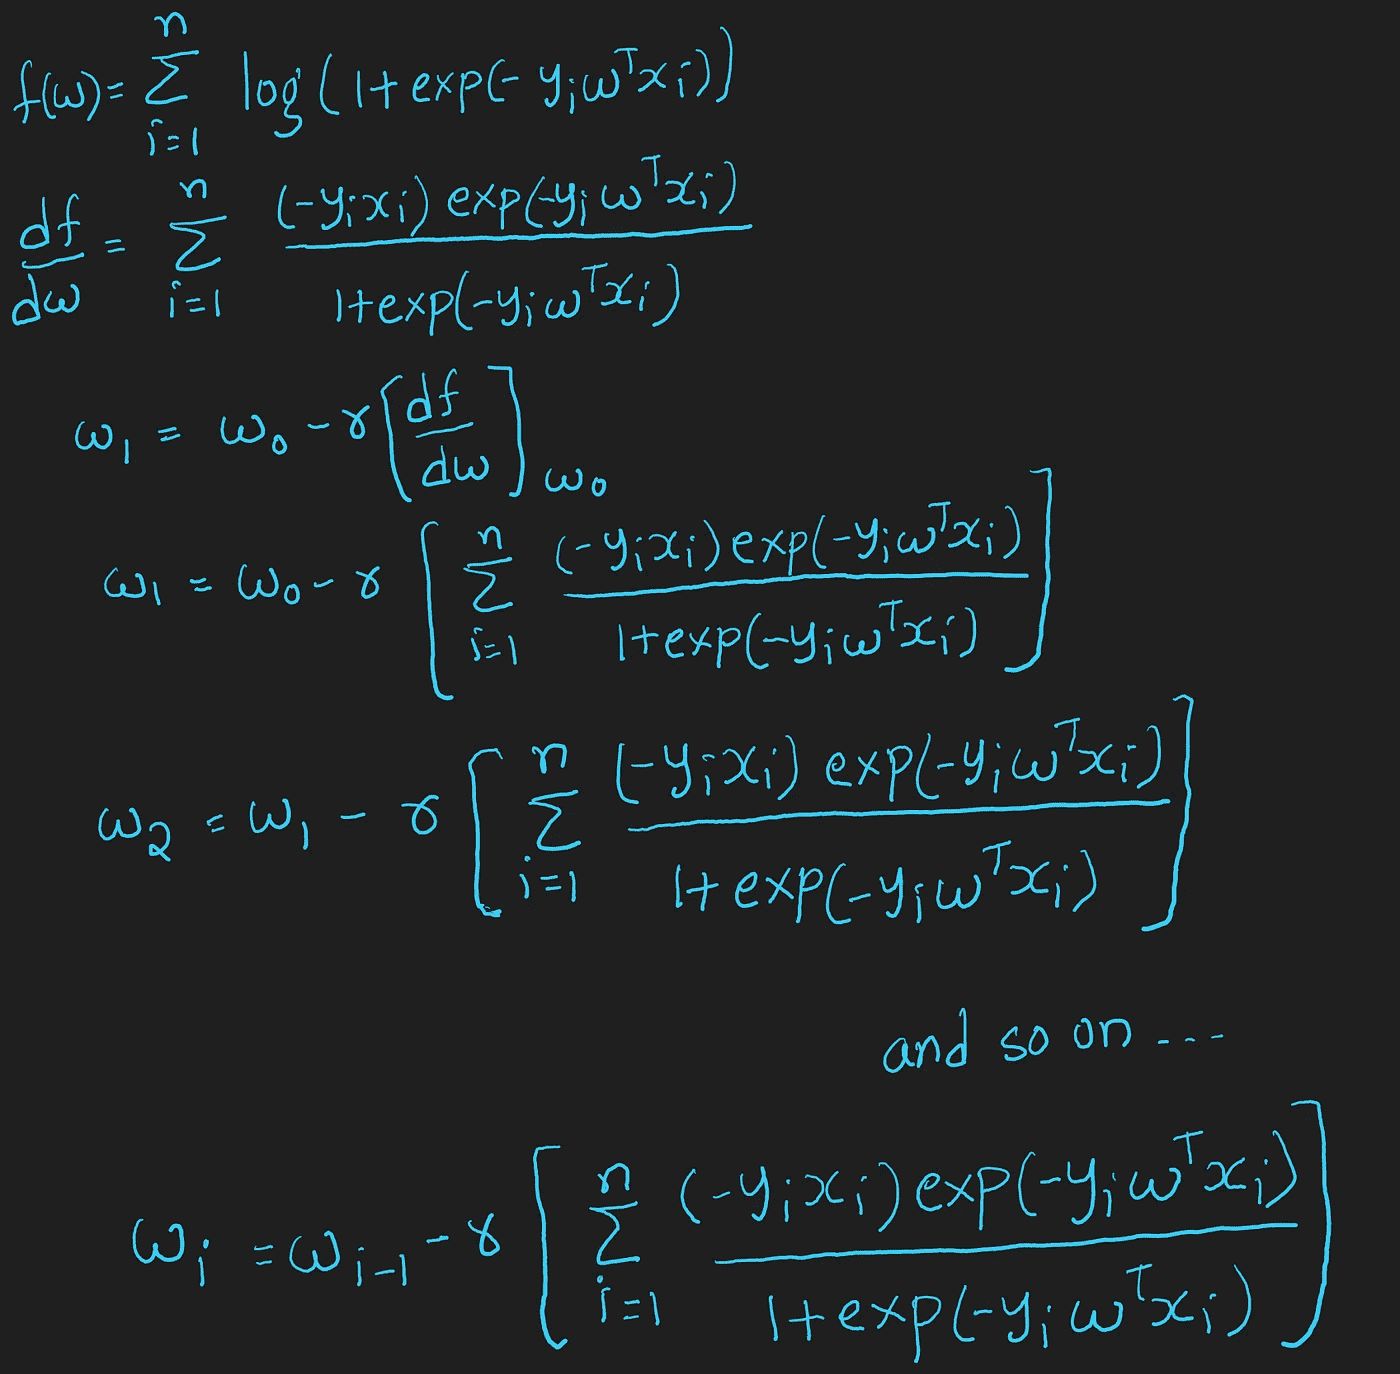 f(ω) = \sum_{i=1}^{n} log(1+exp(-y_i ω^T x_i))
\frac{df}{dω} = \sum_{i=1}^{n} \frac{(-y_i x_i) exp(-y_i ω^T x_i)}{1+exp(-y_i ω^T x_i)}
ω_1 = ω_0 - γ [\frac{df}{dω}]_{ω_0}
ω_1 = ω_0 - γ [\sum_{i=1}^{n} \frac{(-y_i x_i) exp(-y_i ω^T x_i)}{1+exp(-y_i ω^T x_i)}]
ω_2 = ω_1 - γ [\sum_{i=1}^{n} \frac{(-y_i x_i) exp(-y_i ω^T x_i)}{1+exp(-y_i ω^T x_i)}]
and so on ---
ω_i = ω_{i-1} - γ [\sum_{i=1}^{n} \frac{(-y_i x_i) exp(-y_i ω^T x_i)}{1+exp(-y_i ω^T x_i)}]